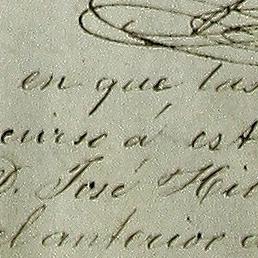 en que las
curso á est
D. José Hil
el anterior